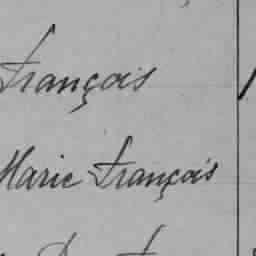 François
Marie François